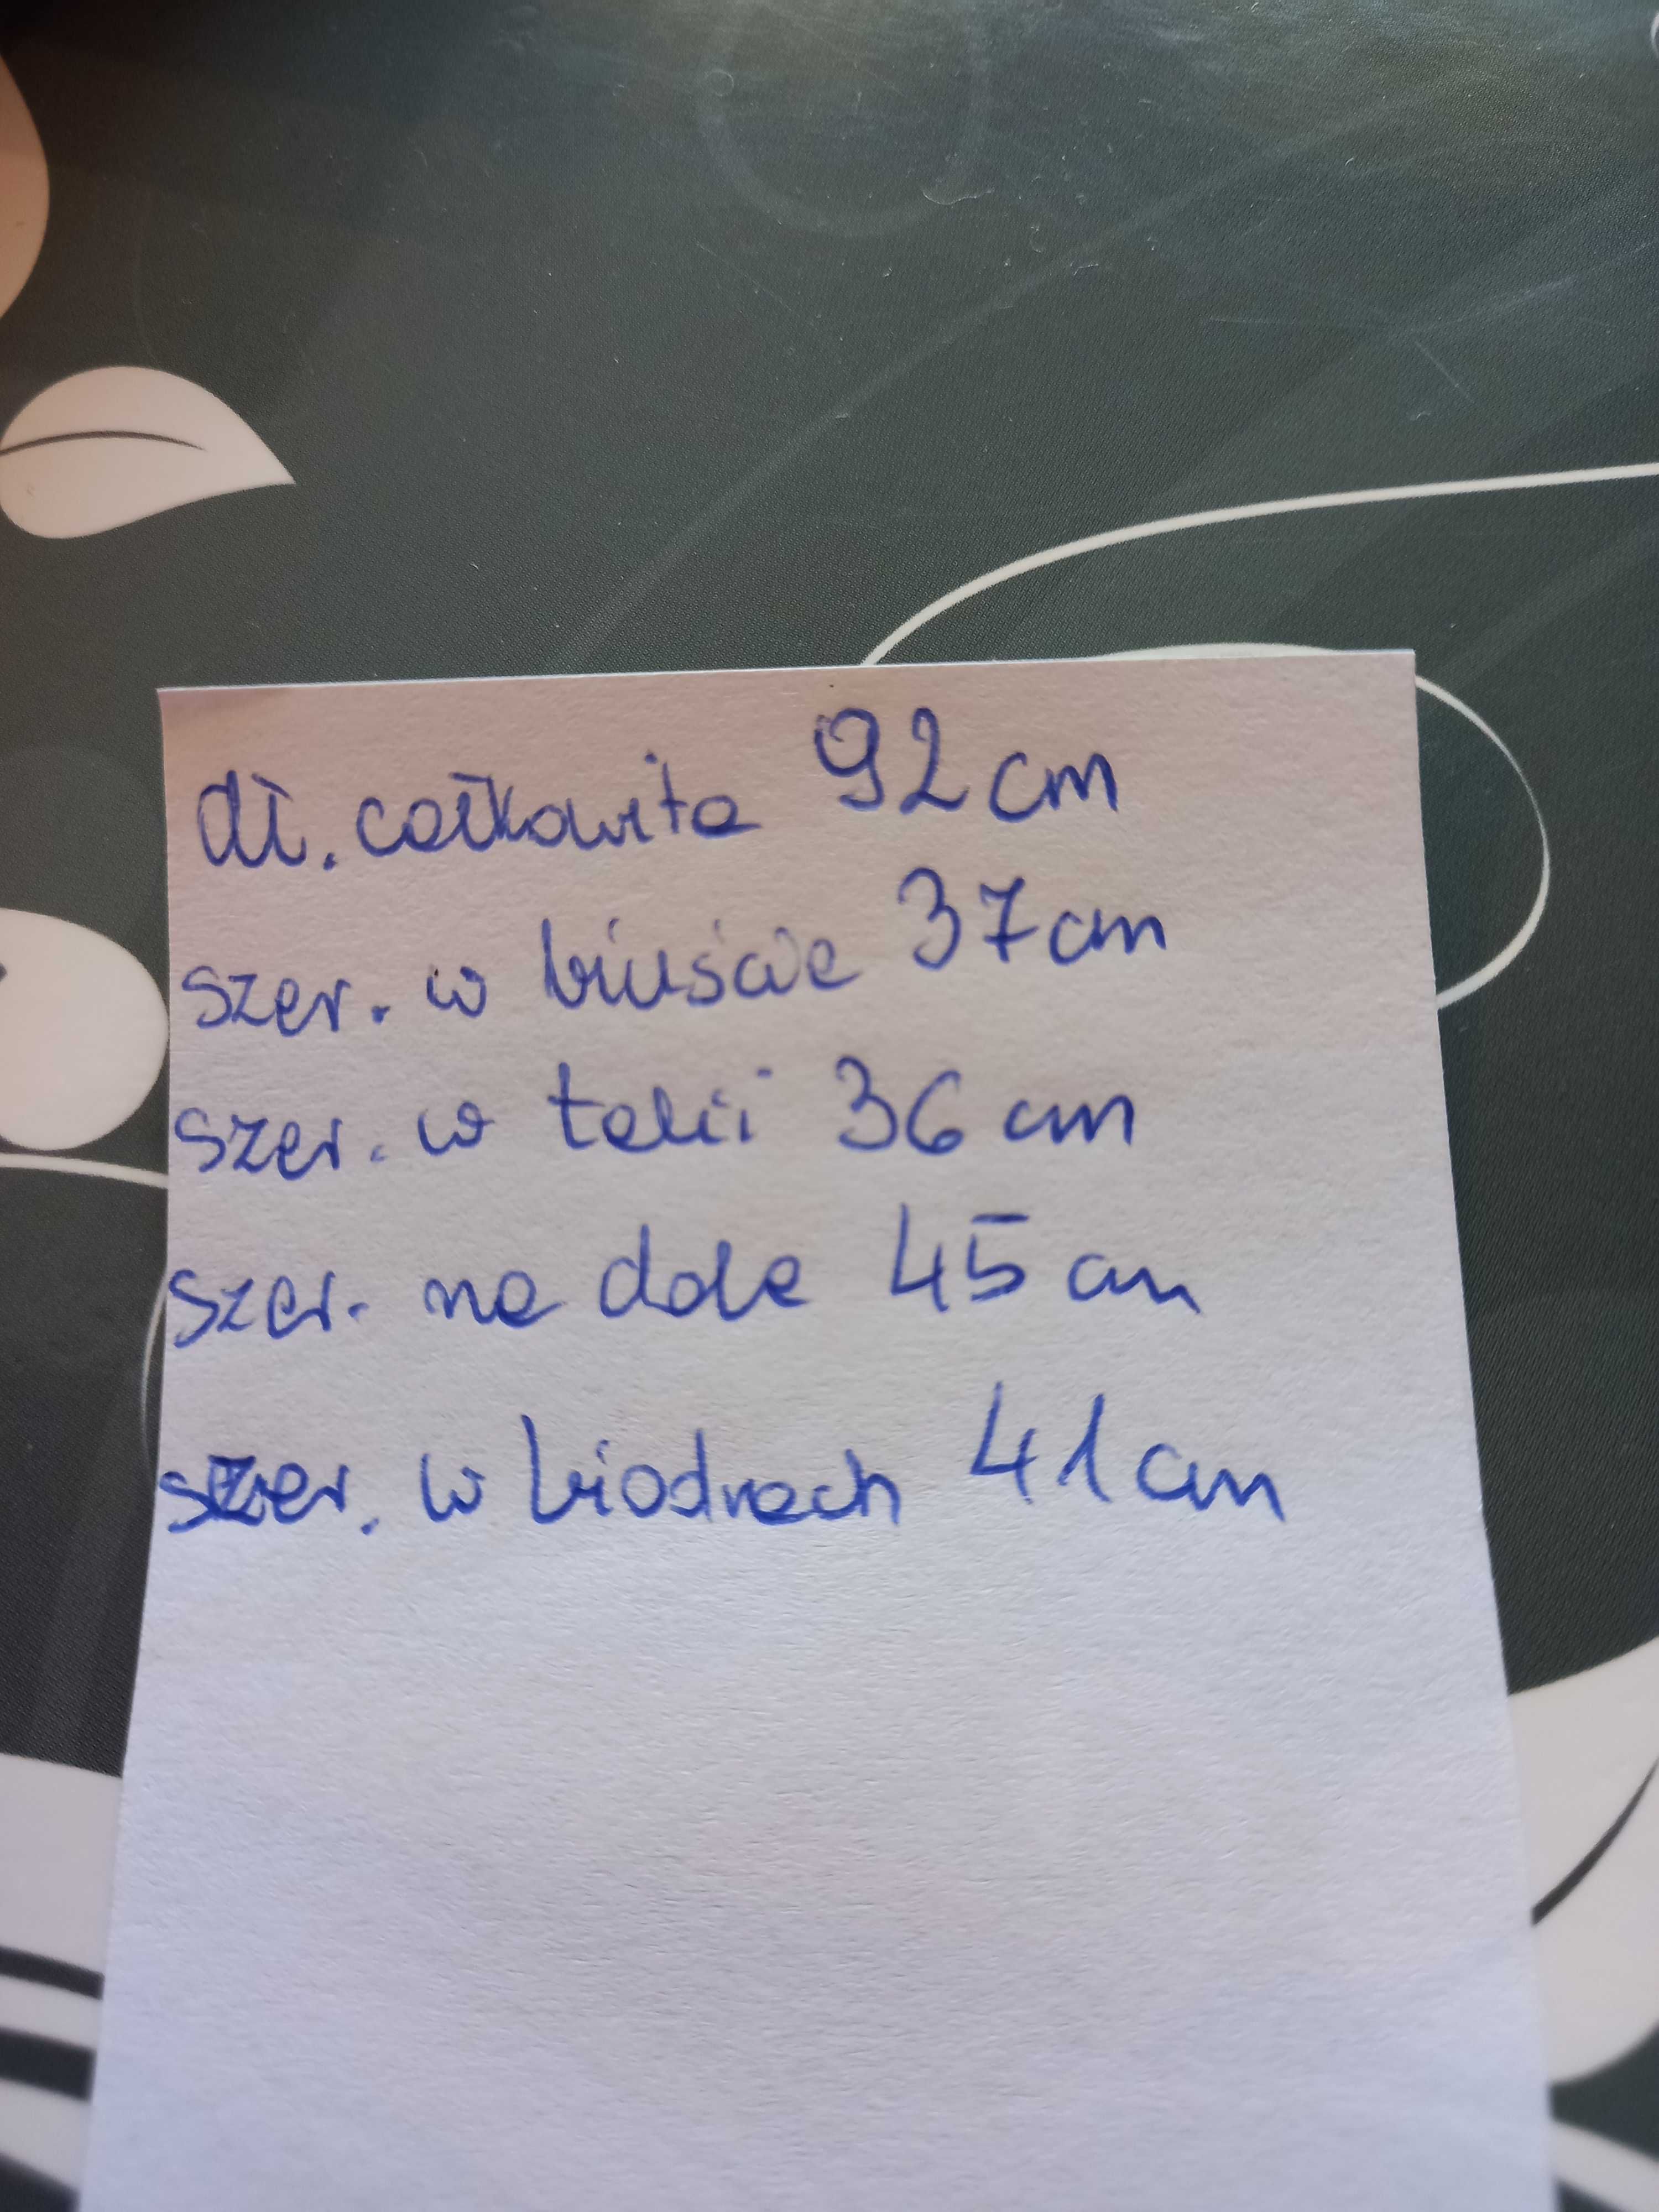 dł. całkowita 92 cm
szer. w biuście 37 cm
szer. w talii 36 cm
szer. na dole 45 cm
szer. w biodrach 41 cm